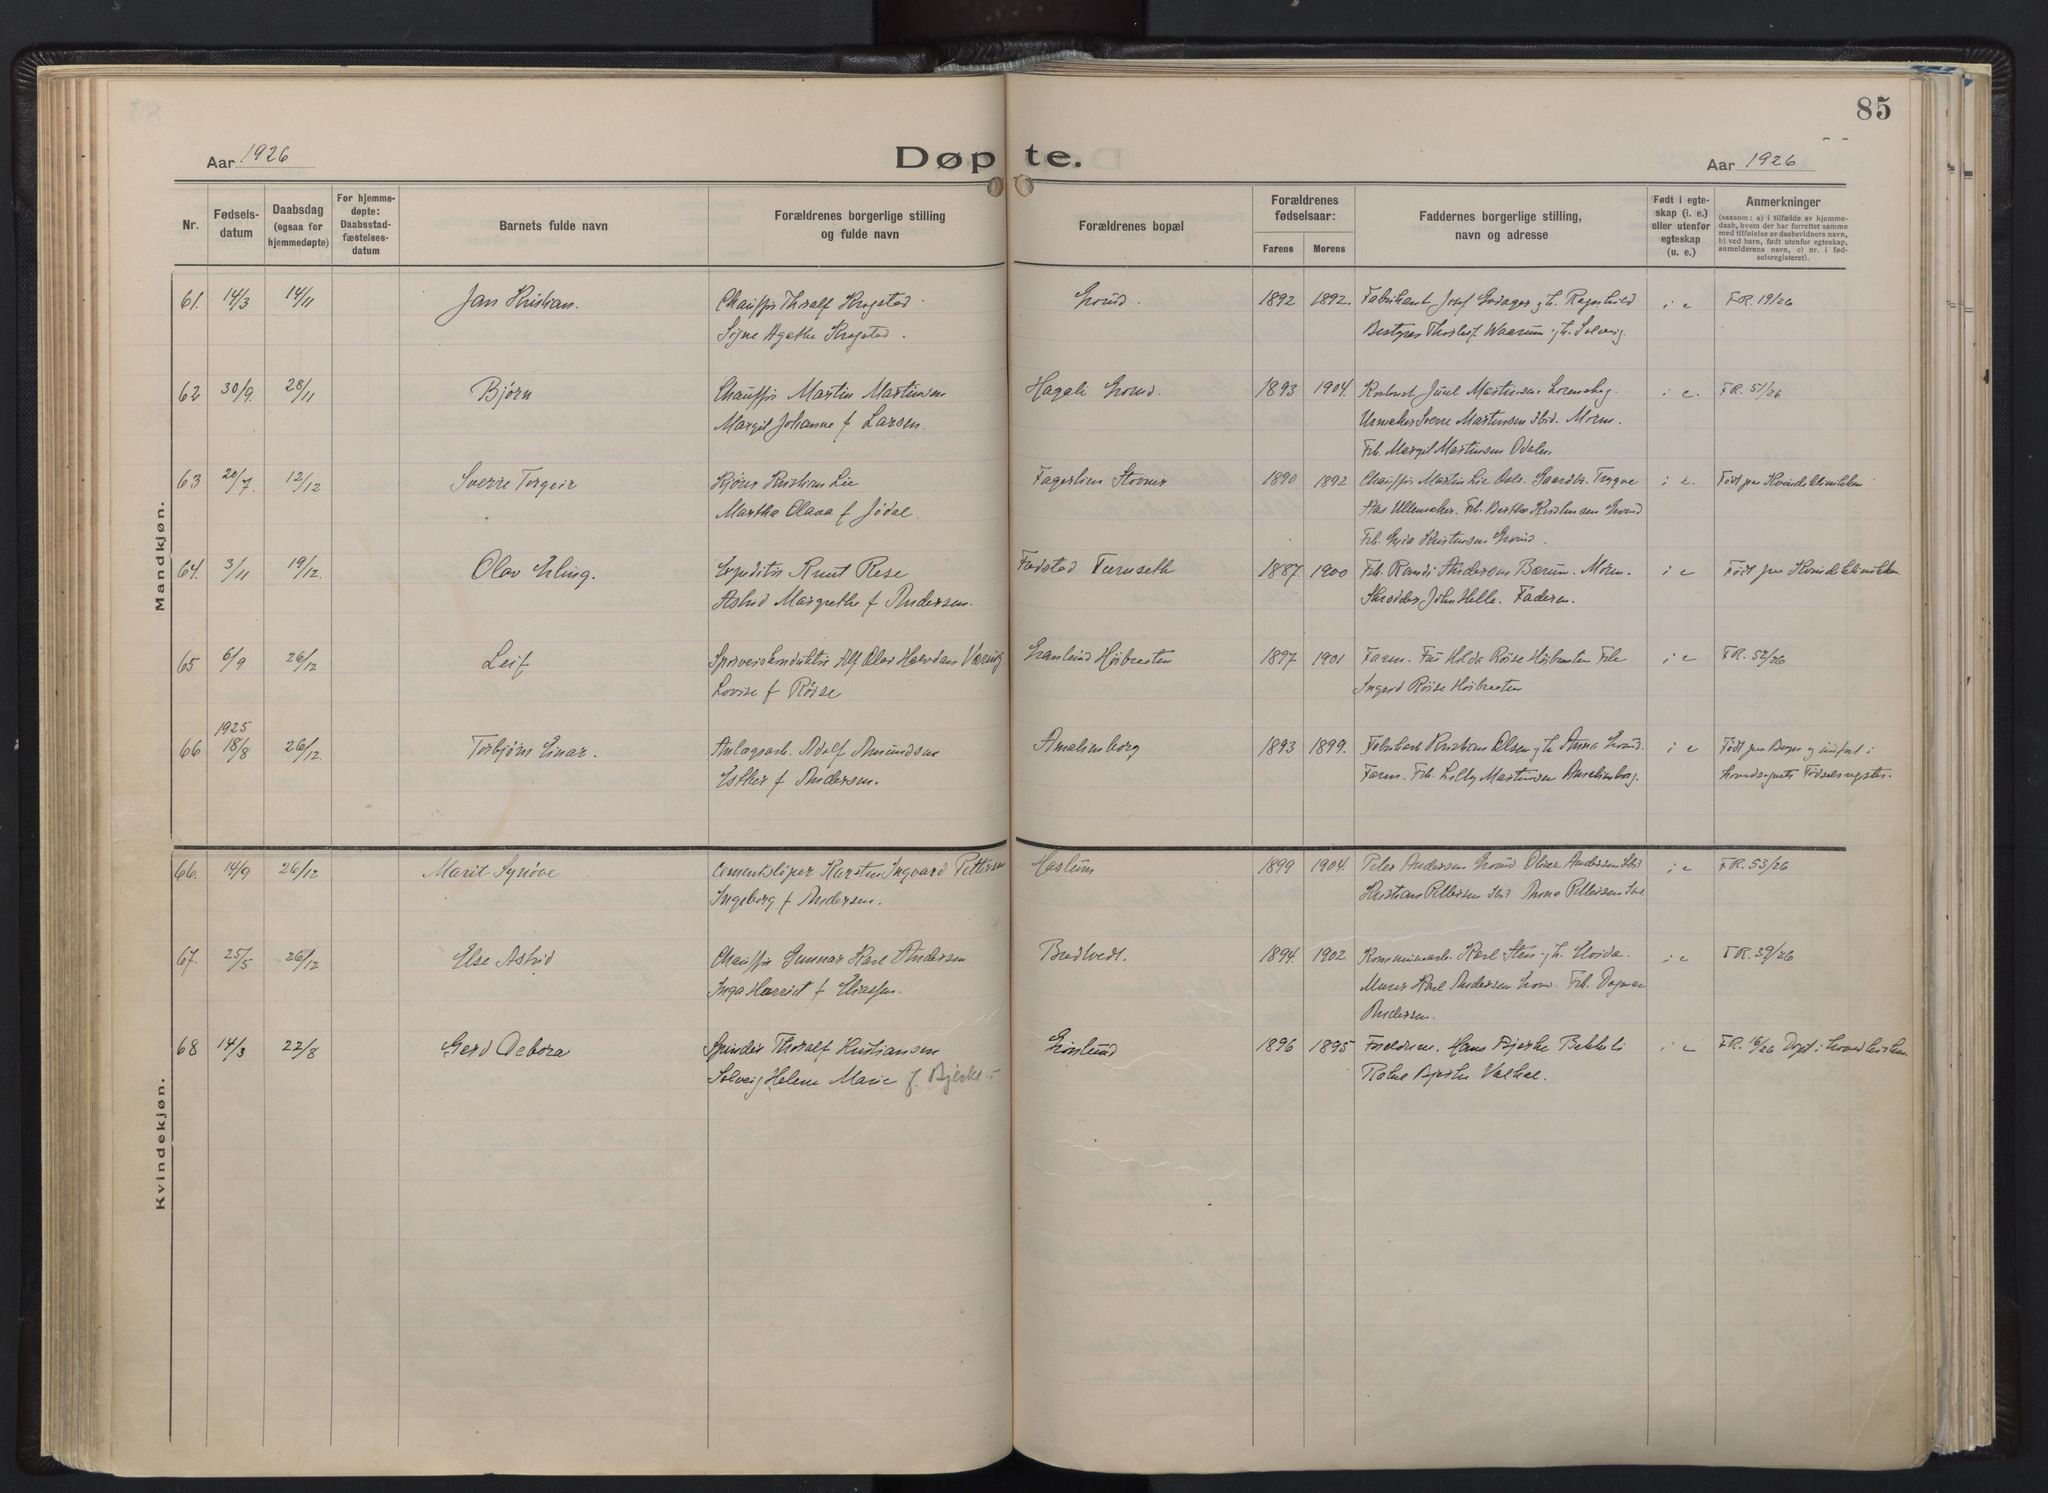 85
Aar 1926
Døpte.
Aar 1926
Nr.
Fødsels-
datum
Daabsdag
(ogsaa for
hjemmedøpte)
For hjemme-
døpte:
Daabsstad-
fæstelses-
datum
Barnets fulde navn
Forældrenes borgerlige stilling
og fulde navn
Forældrenes bopæl
Forældrenes
fødselsaar:
Farens
Morens
Faddernes borgerlige stilling,
navn og adresse
Født i egte-
skap (i. e.)
eller utenfor
egteskap
(u. e.)
Anmerkninger
(saasom: a) i tilfælde av hjemme-
daab, hvem der har forrettet samme
med tilføielse av daabsvidners navn,
b) ved barn, født utenfor egteskap,
anmelderens navn, c) nr. i fød-
selsregisteret).
Mandkjøn.
61. 14/3 14/11 Jan Kristian. Chauffør Thoralf Krogstad Grorud. 1892 1892. Fabrikant Josef h. Ragnhild i e F.R. 19/26
Signe Agathe Krogstad. Bestyrer Waarum h. Solveig.
62 30/9. 28/11 Bjørn Chauffør Martin Martinsen Grorud. 1893 1904. Juul Martinsen Lørenskog. i e. F.R. 51/26
Margit Johanne f Larsen. Urmaker Sverre Martinsen ibid. Moren.
Frk. Margit Martinsen Odalen
63 20/7. 12/12 Sverre Torgeir Kjører Kristian Lie Fagerlien Stovner 1890 1892 Chauffør Martin Lie Oslo. Gaardbr. Trygve i e. Født paa Kvindeklinikken
Martha Olava f Jødal. Aas Ullensaker. Frk. Berthe Kristensen Grorud
Frk. Kristensen Grorud.
64. 3/11 19/12. Olav Erling. Expeditør Knut Rese Furuseth 1887. 1900 Frk. Randi Andersen Bærum. Moren. i e Født paa Kvindeklinikken.
Astrid Margrethe f Andersen. Skrædder John Helle. Faderen.
65 6/9 26/12 Leif Sporveiskonduktør Alf Olav Halvdan Granlund Høibraaten 1897 1901 Faren. Fru Hilda Røise Høibraaten Frk i e F.R. 52/26
Lovise f Røise Ingrid Røise Høibraaten
1925
66 18/8 26/12. Torbjørn Einar. Anlægsarb. Adolf Amundsen Amalienborg 1893 1899. Kristian Olsen h. Anna Grorud. i e Født paa og indført i
Esther f Andersen. Faren. Frk. Lilly Martinsen Amalienborg. hovedsognets Fødselsregister.
Kvindekjøn.
66. 14/9 26/12 Marit Synøve Cementstøper Karsten Ingvard Pettersen Haslum 1899 1904. Peter Andersen Grorud Oliver Andersen ibid i e F.R. 53/26
Ingeborg f Andersen. Kristian Pettersen ibid Anna Pettersen ibid
67. 25/5 26/12 Else Astrid Chauffør Gunnar Karl Andersen Bredtvedt. 1894. 1902. Kommunearb. Karl Steen h. i e F.R. 39/26
Inga Harriet f Eliassen. Murer Karl Andersen Frk. Dagmar
Andersen.
68 14/3 22/8 Gerd Debora Spinder Thoralf Kristiansen 1896 1895 Forældrene. Hans Bjerke Bekkeli i e F.R. 16/26 Døpt i hovedkirken
Solveig Helene Marie f. Bjerke Bjerke Valhal.